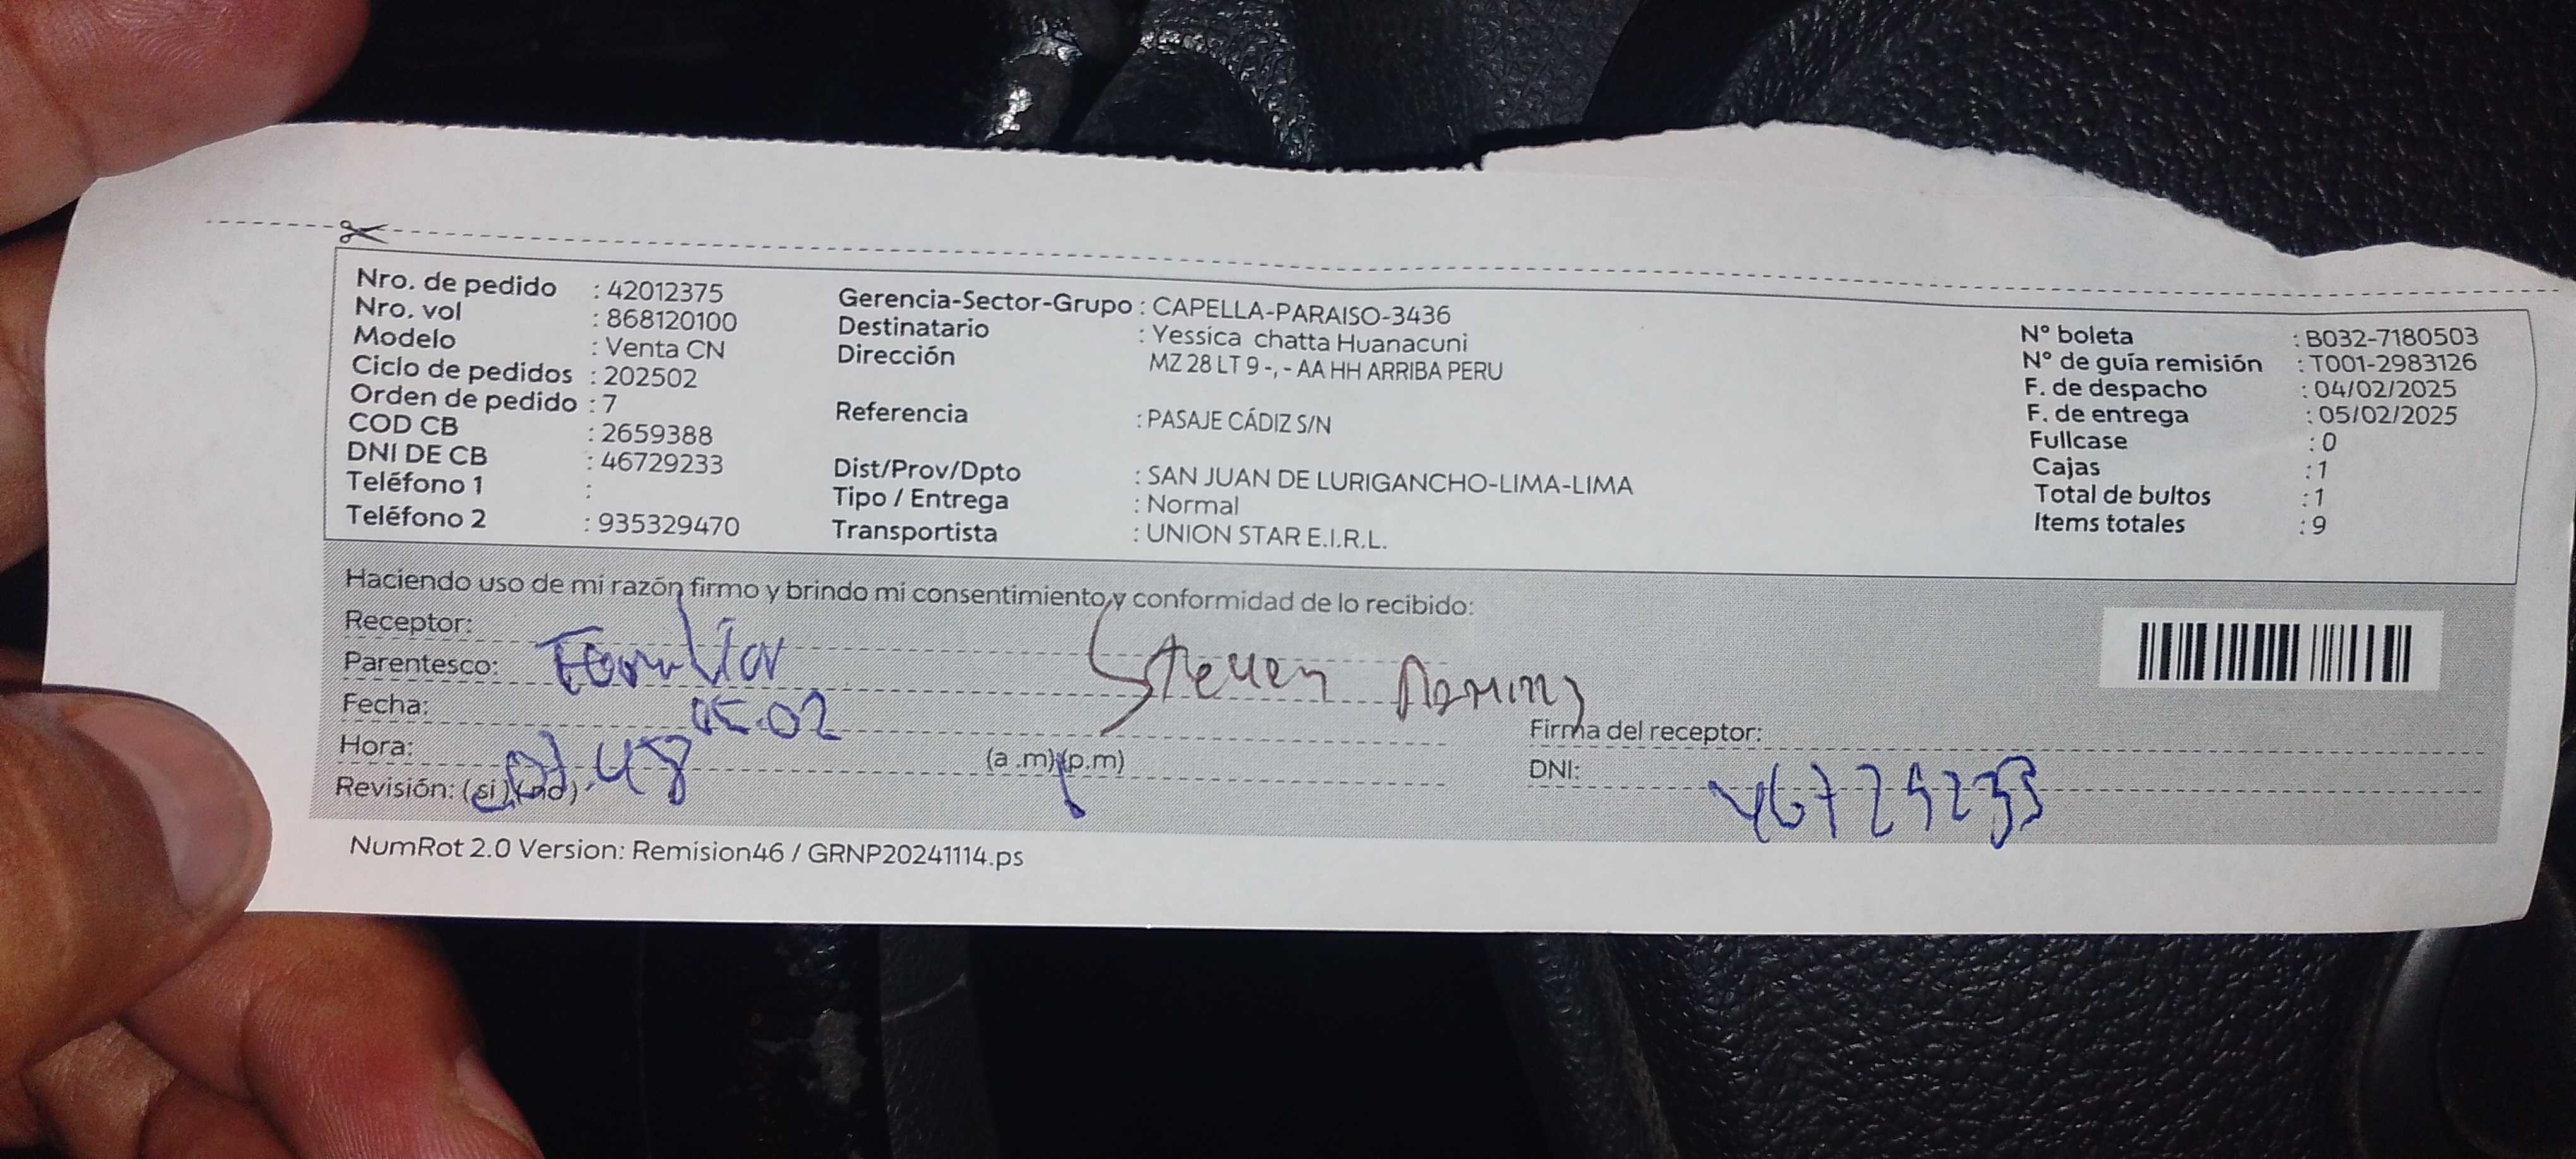 Nro. de pedido : 42012375
Nro. vol : 868120100
Modelo : Venta CN
Ciclo de pedidos : 202502
Orden de pedido : 7
COD CB : 2659388
DNI DE CB : 46729233
Teléfono 1 :
Teléfono 2 : 935329470
Gerencia-Sector-Grupo : CAPELLA-PARAISO-3436
Destinatario : Yessica chatta Huanacuni
Dirección MZ 28 LT 9 -, - AA HH ARRIBA PERU
Referencia : PASAJE CÁDIZ S/N
Dist/Prov/Dpto : SAN JUAN DE LURIGANCHO-LIMA-LIMA
Tipo / Entrega : Normal
Transportista : UNION STAR E.I.R.L.
N° boleta : B032-7180503
N° de guía remisión : T001-2983126
F. de despacho : 04/02/2025
F. de entrega : 05/02/2025
Fullcase : 0
Cajas : 1
Total de bultos : 1
Items totales : 9
Haciendo uso de mi razón firmo y brindo mi consentimiento y conformidad de lo recibido:
Receptor: Steven
Parentesco: Familiar
Fecha: 05.02
Hora: (a .m) (p.m)
Revisión: (si) (no)
Firma del receptor:
DNI: 46729233
NumRot 2.0 Version: Remision46 / GRNP20241114.ps